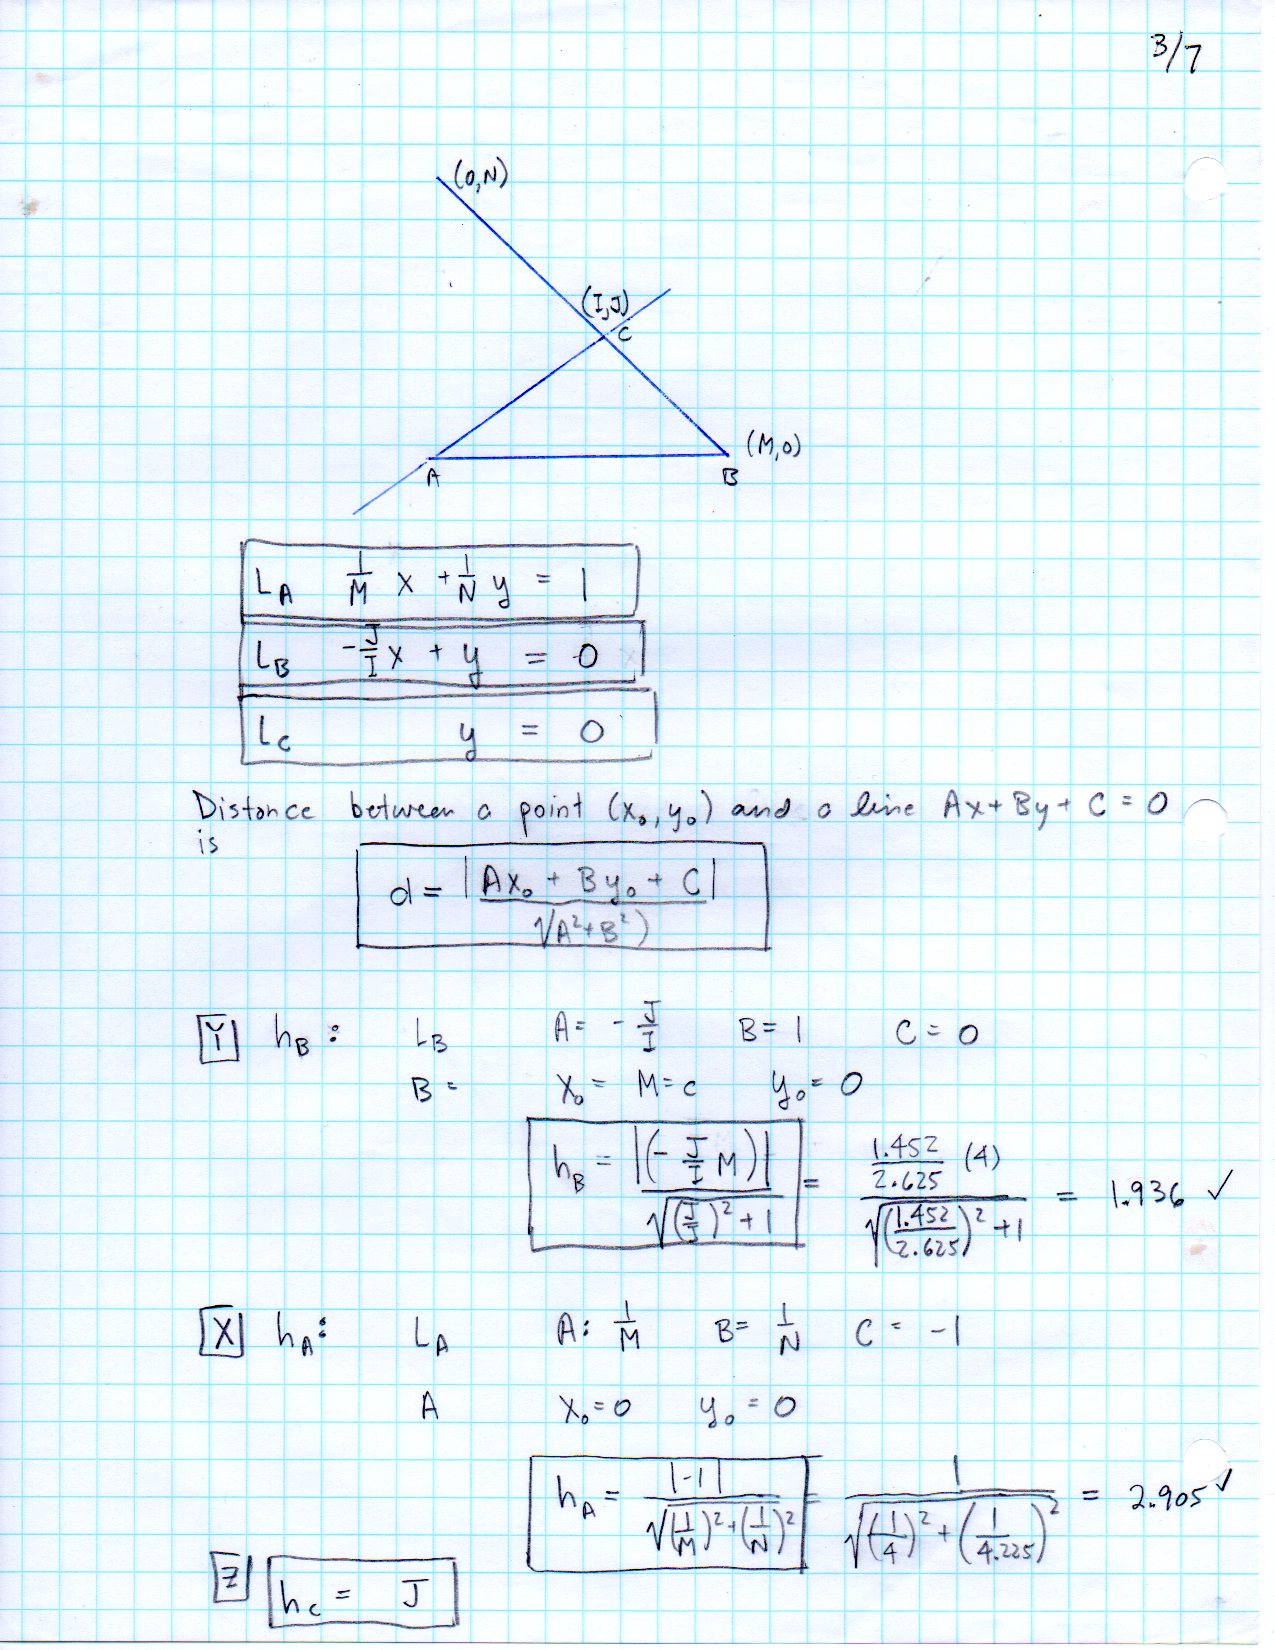 3/7
(0,N)
(I,J)
C
(M,0)
A
B
L_A 1/M x + 1/N y = 1
L_B -J/I x + y = 0
L_C y = 0
Distance between a point (x₀, y₀) and a line Ax + By + C = 0
is
d = |Ax₀ + By₀ + C| / √(A²+B²)
Y h_B: L_B A = -J/I B = 1 C = 0
B = x₀ = M = c y₀ = 0
h_B = |(-J/I M)| / √((J/J)² + 1) = (1.452/2.625 (4)) / √((1.452/2.625)² + 1) = 1.936 ✓
X h_A: L_A A: 1/M B = 1/N C = -1
A x₀ = 0 y₀ = 0
h_A = |-1| / √((1/M)² + (1/N)²) = 1 / √((1/4)² + (1/4.225)²) = 2.905 ✓
Z h_C = J